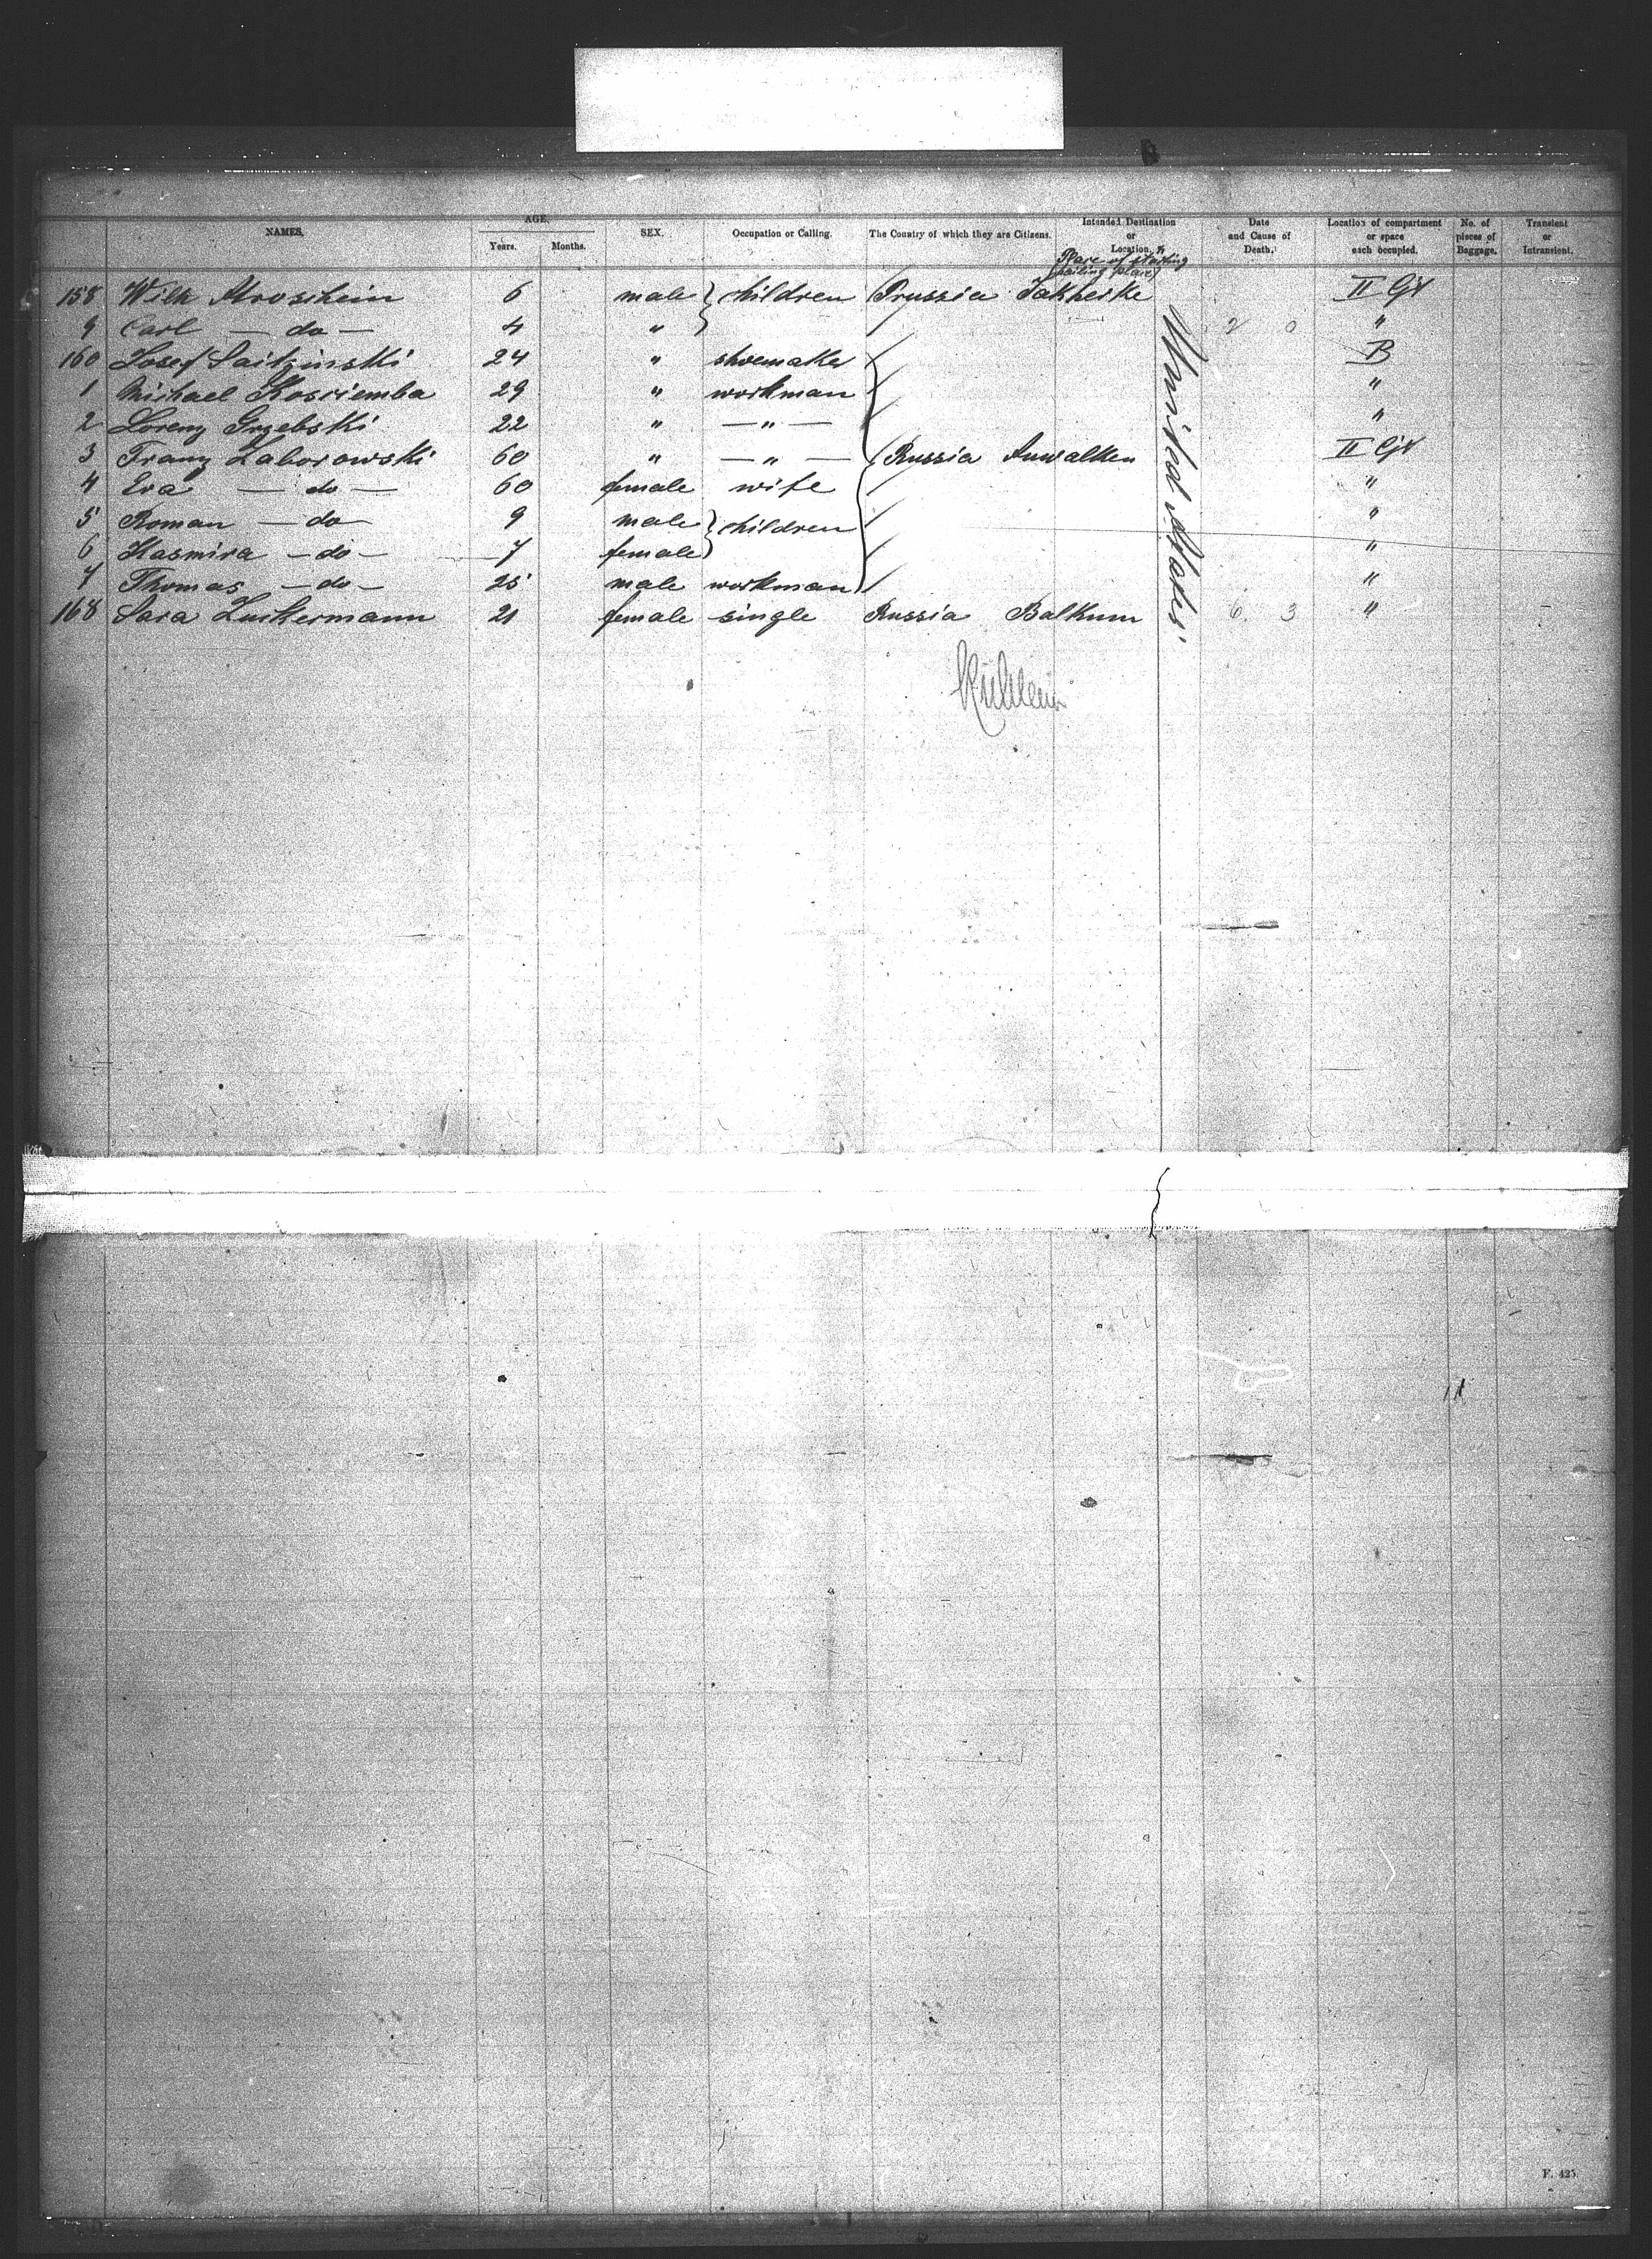 NAMES. AGE. Years. Months. SEX. Occupation or Calling. The Country of which they are Citizens. Intended Destination or Location, & Place of starting (sailing place) Date and Cause of Death. Location of compartment or space each occupied. No. of pieces of Baggage. Transient or Intransient.
158 Wilh 6 male } children Prussia II
9 Carl — do — 4 " 2 0 "
160 Josef 24 " shoemaker B
1 Michael Kosciemba 29 " workman "
2 Lorenz Grzebski 22 " — " — "
3 Franz Zaborowski 60 " — " — Russia Suwalken II
4 Eva — do — 60 female wife "
5 Roman — do — 9 male } children "
6 Kasmira — do — 7 female "
7 Thomas — do — 25 male workman "
168 Sara Zuckermann 21 female single Russia Balkum 6. 3 "
United States
F. 425.